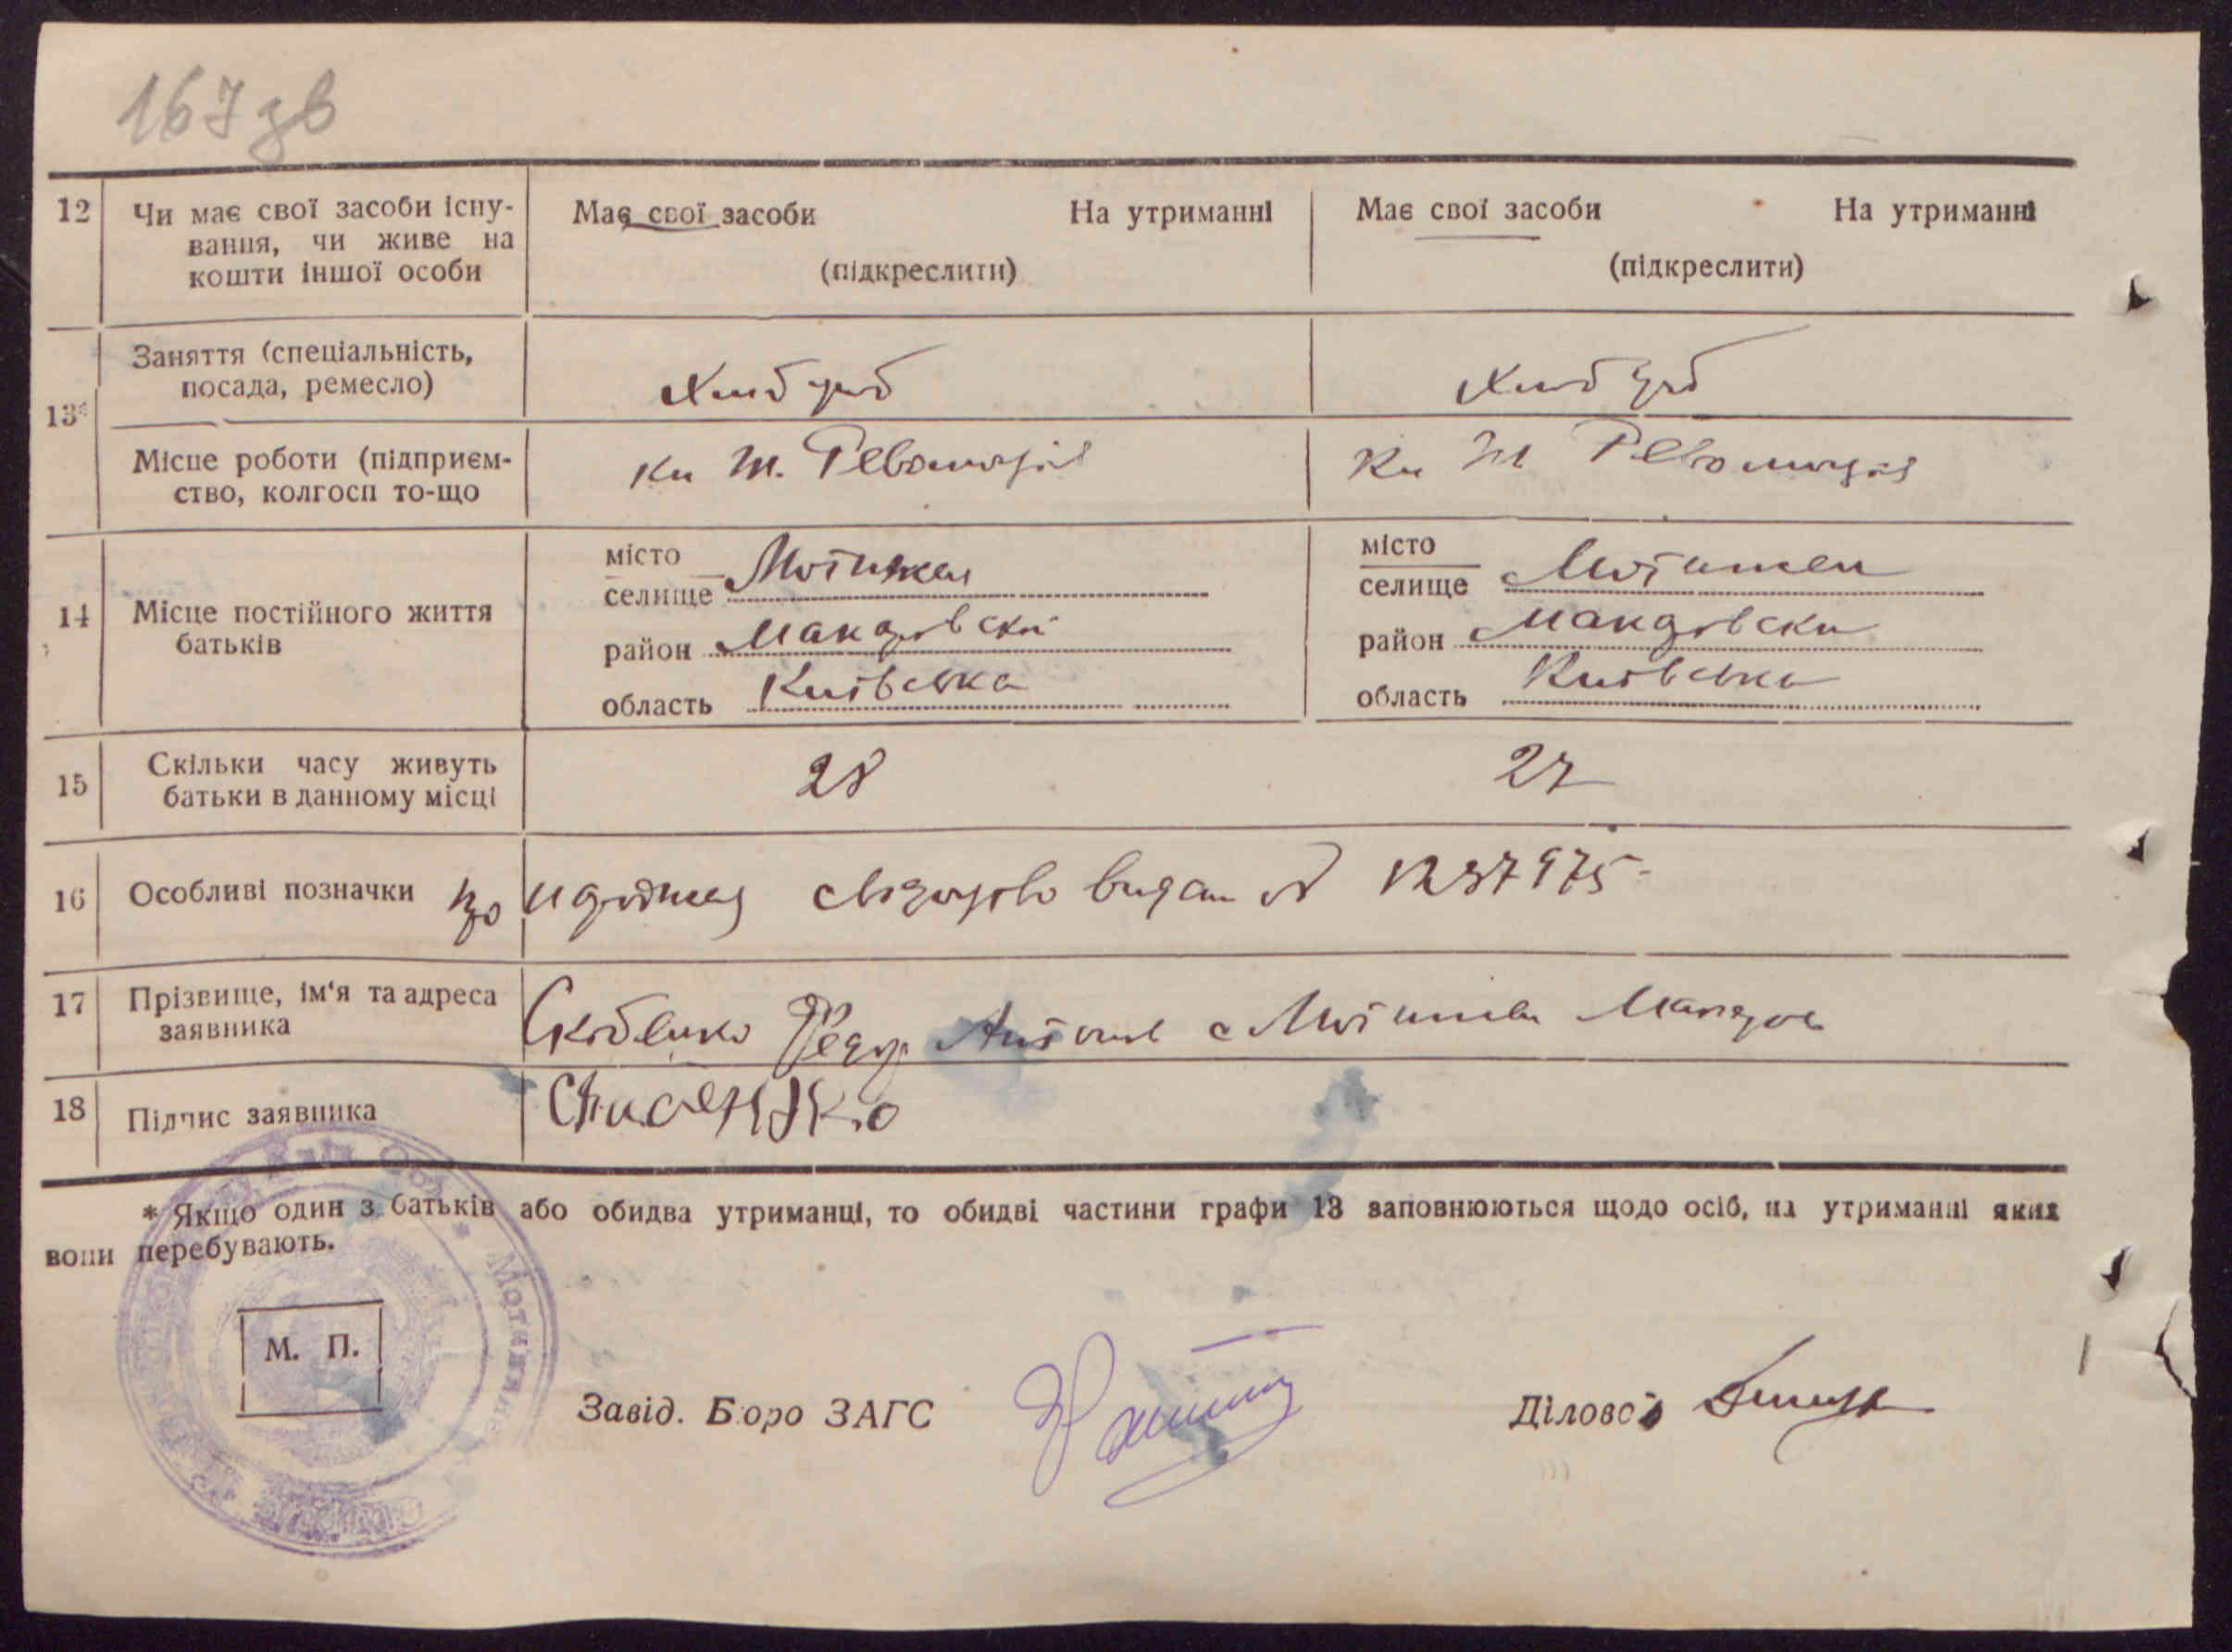 167 зв
12 Чи має свої засоби існу-
вання, чи живе на
кошти іншої особи
Має свої засоби На утриманні
(підкреслити)
Має свої засоби На утриманні
(підкреслити)
13*
Заняття (спеціальність,
посада, ремесло)
Хлібороб
Хлібороб
Місце роботи (підприєм-
ство, колгосп то-що
Революція
Революція
14 Місце постійного життя
батьків
місто
селище Мотижин
район Макарівский
область Київська
місто
селище Мотижин
район Макарівски
область Київська
15 Скільки часу живуть
батьки в данному місці
28
27
16 Особливі позначки
про народження свідоцтво видан № 1237975
17 Прізвище, ім'я та адреса
заявника
Скобенко Федір с Мотижин Макарів
18 Підпис заявника
* Якщо один з батьків або обидва утриманці, то обидві частини графи 13 заповнюються щодо осіб, на утриманні яких
вони перебувають.
М. П.
Завід. Бюро ЗАГС
Діловод